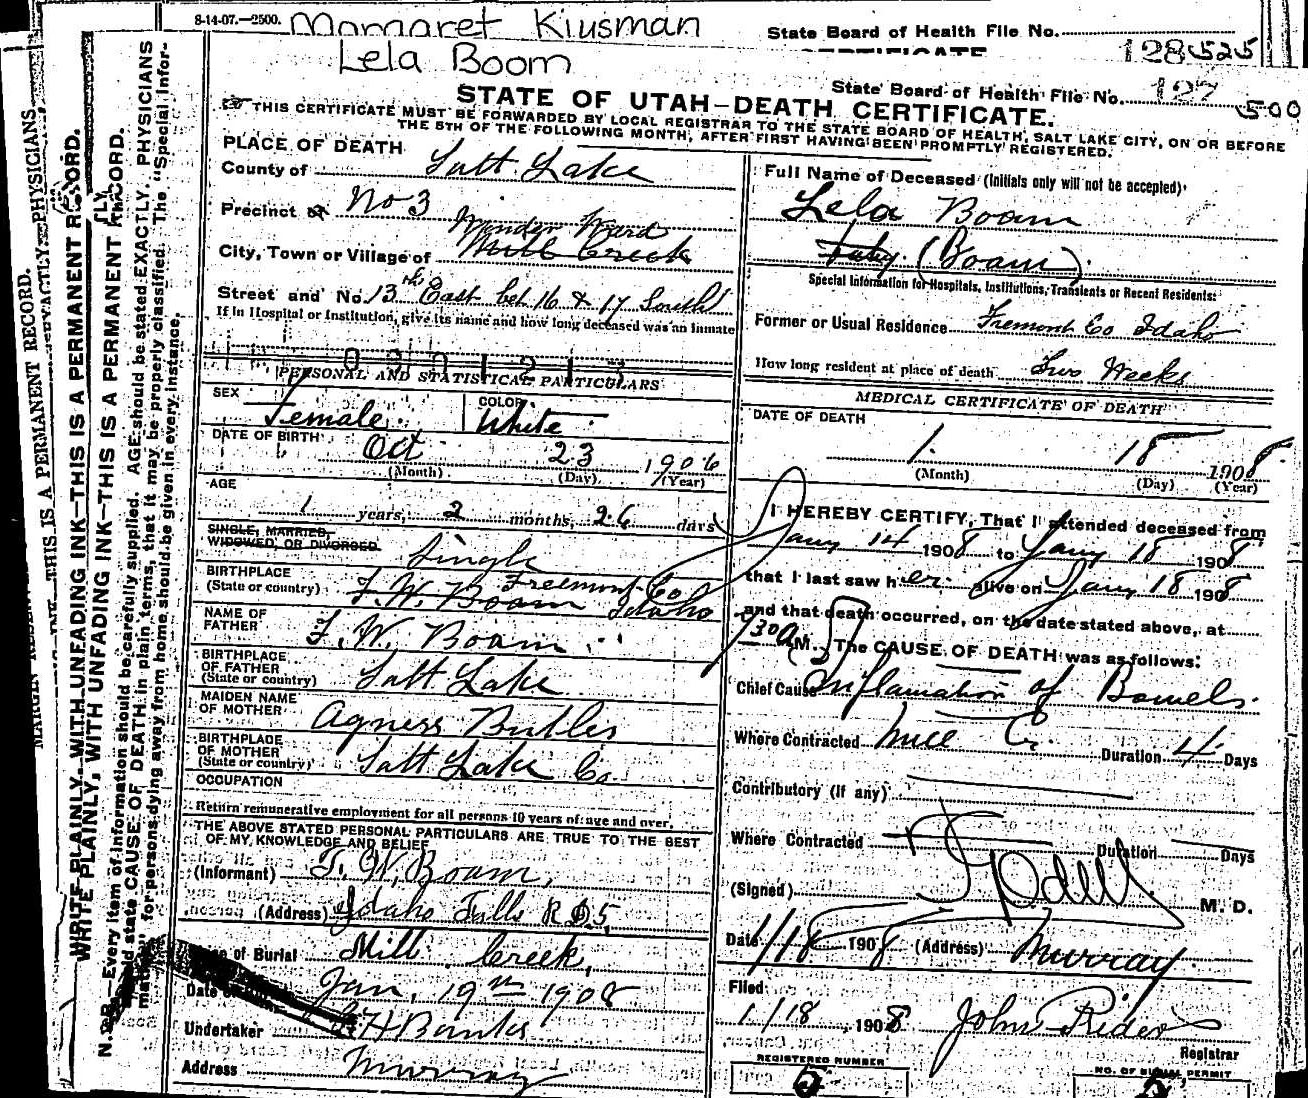 8-14-07.—2500. Margaret Kiusman State Board of Health File No.
128525
Lela Boom
State Board of Health File No. 127 500
STATE OF UTAH—DEATH CERTIFICATE.
THIS CERTIFICATE MUST BE FORWARDED BY LOCAL REGISTRAR TO THE STATE BOARD OF HEALTH, SALT LAKE CITY, ON OR BEFORE
THE 5TH OF THE FOLLOWING MONTH, AFTER FIRST HAVING BEEN PROMPTLY REGISTERED.
PLACE OF DEATH
County of Salt Lake
Precinct or No 3
Winder Ward
City, Town or Village of Mill Creek
Street and No. 13th East bet 16 & 17 South
If in Hospital or Institution, give its name and how long deceased was an inmate
PERSONAL AND STATISTICAL PARTICULARS
SEX Female COLOR White
DATE OF BIRTH Oct 23 1906
(Month) (Day) (Year)
AGE
1 years, 2 months, 26 days
SINGLE, MARRIED,
WIDOWED, OR DIVORCED Single
BIRTHPLACE Freemont Co
(State or country) T. W. Boam Idaho
NAME OF
FATHER T. W. Boam
BIRTHPLACE
OF FATHER
(State or country) Salt Lake
MAIDEN NAME
OF MOTHER Agness Butler
BIRTHPLACE
OF MOTHER
(State or country) Salt Lake Co
OCCUPATION
Return remunerative employment for all persons 10 years of age and over.
THE ABOVE STATED PERSONAL PARTICULARS ARE TRUE TO THE BEST
OF MY KNOWLEDGE AND BELIEF
(Informant) T. W. Boam,
(Address) Idaho Falls R D 5,
of Burial Mill Creek,
Date Jan, 19th 1908
Undertaker Banks
Address Murray
Full Name of Deceased (Initials only will not be accepted).
Lela Boam
(Boam)
Special Information for Hospitals, Institutions, Transients or Recent Residents:
Former or Usual Residence Fremont Co Idaho
How long resident at place of death Two Weeks
MEDICAL CERTIFICATE OF DEATH
DATE OF DEATH
1. 18 1908.
(Month) (Day) (Year)
I HEREBY CERTIFY, That I attended deceased from
Jany 14 1908 to Jany 18 1908
that I last saw her alive on Jany 18 1908
and that death occurred, on the date stated above, at
730 A M. The CAUSE OF DEATH was as follows:
Chief Cause Inflamation of Bowels.
Where Contracted Mill Cr. Duration 4 Days
Contributory (if any)
Where Contracted Duration Days
(Signed) M. D.
Date 1/18 1908 (Address) Murray.
Filed
1/18, 1908 John Rider
Registrar
REGISTERED NUMBER
5
NO. OF BURIAL PERMIT
5
WRITE PLAINLY, WITH UNFADING INK—THIS IS A PERMANENT RECORD.
WRITE PLAINLY, WITH UNFADING INK—THIS IS A PERMANENT RECORD.
N. B.—Every item of information should be carefully supplied. AGE should be stated EXACTLY. PHYSICIANS
should state CAUSE OF DEATH in plain terms, that it may be properly classified. The "Special Infor-
mation" for persons dying away from home should be given in every instance.
THIS IS A PERMANENT RECORD.